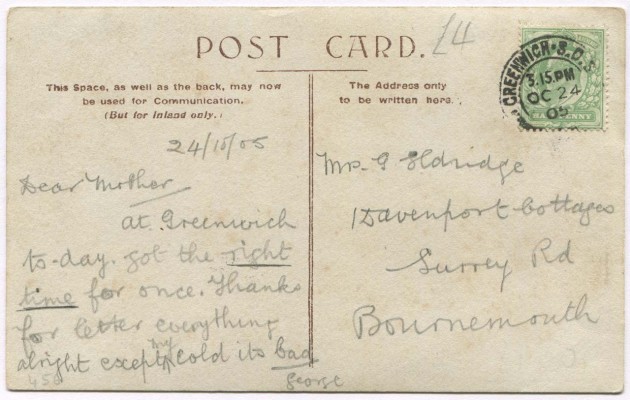 POST CARD.
£4
This Space, as well as the back, may now
be used for Communication.
(But for Inland only.)
The Address only
to be written here.
GREENWICH · S.O.S
3.15.PM
OC 24
05
HALFPENNY
24/10/05
Dear Mother
at Greenwich
to-day. got the right
time for once. Thanks
for letter everything
alright except my cold its bad
George
Mrs G Eldridge
1 Davenport Cottages
Surrey Rd
Bournemouth